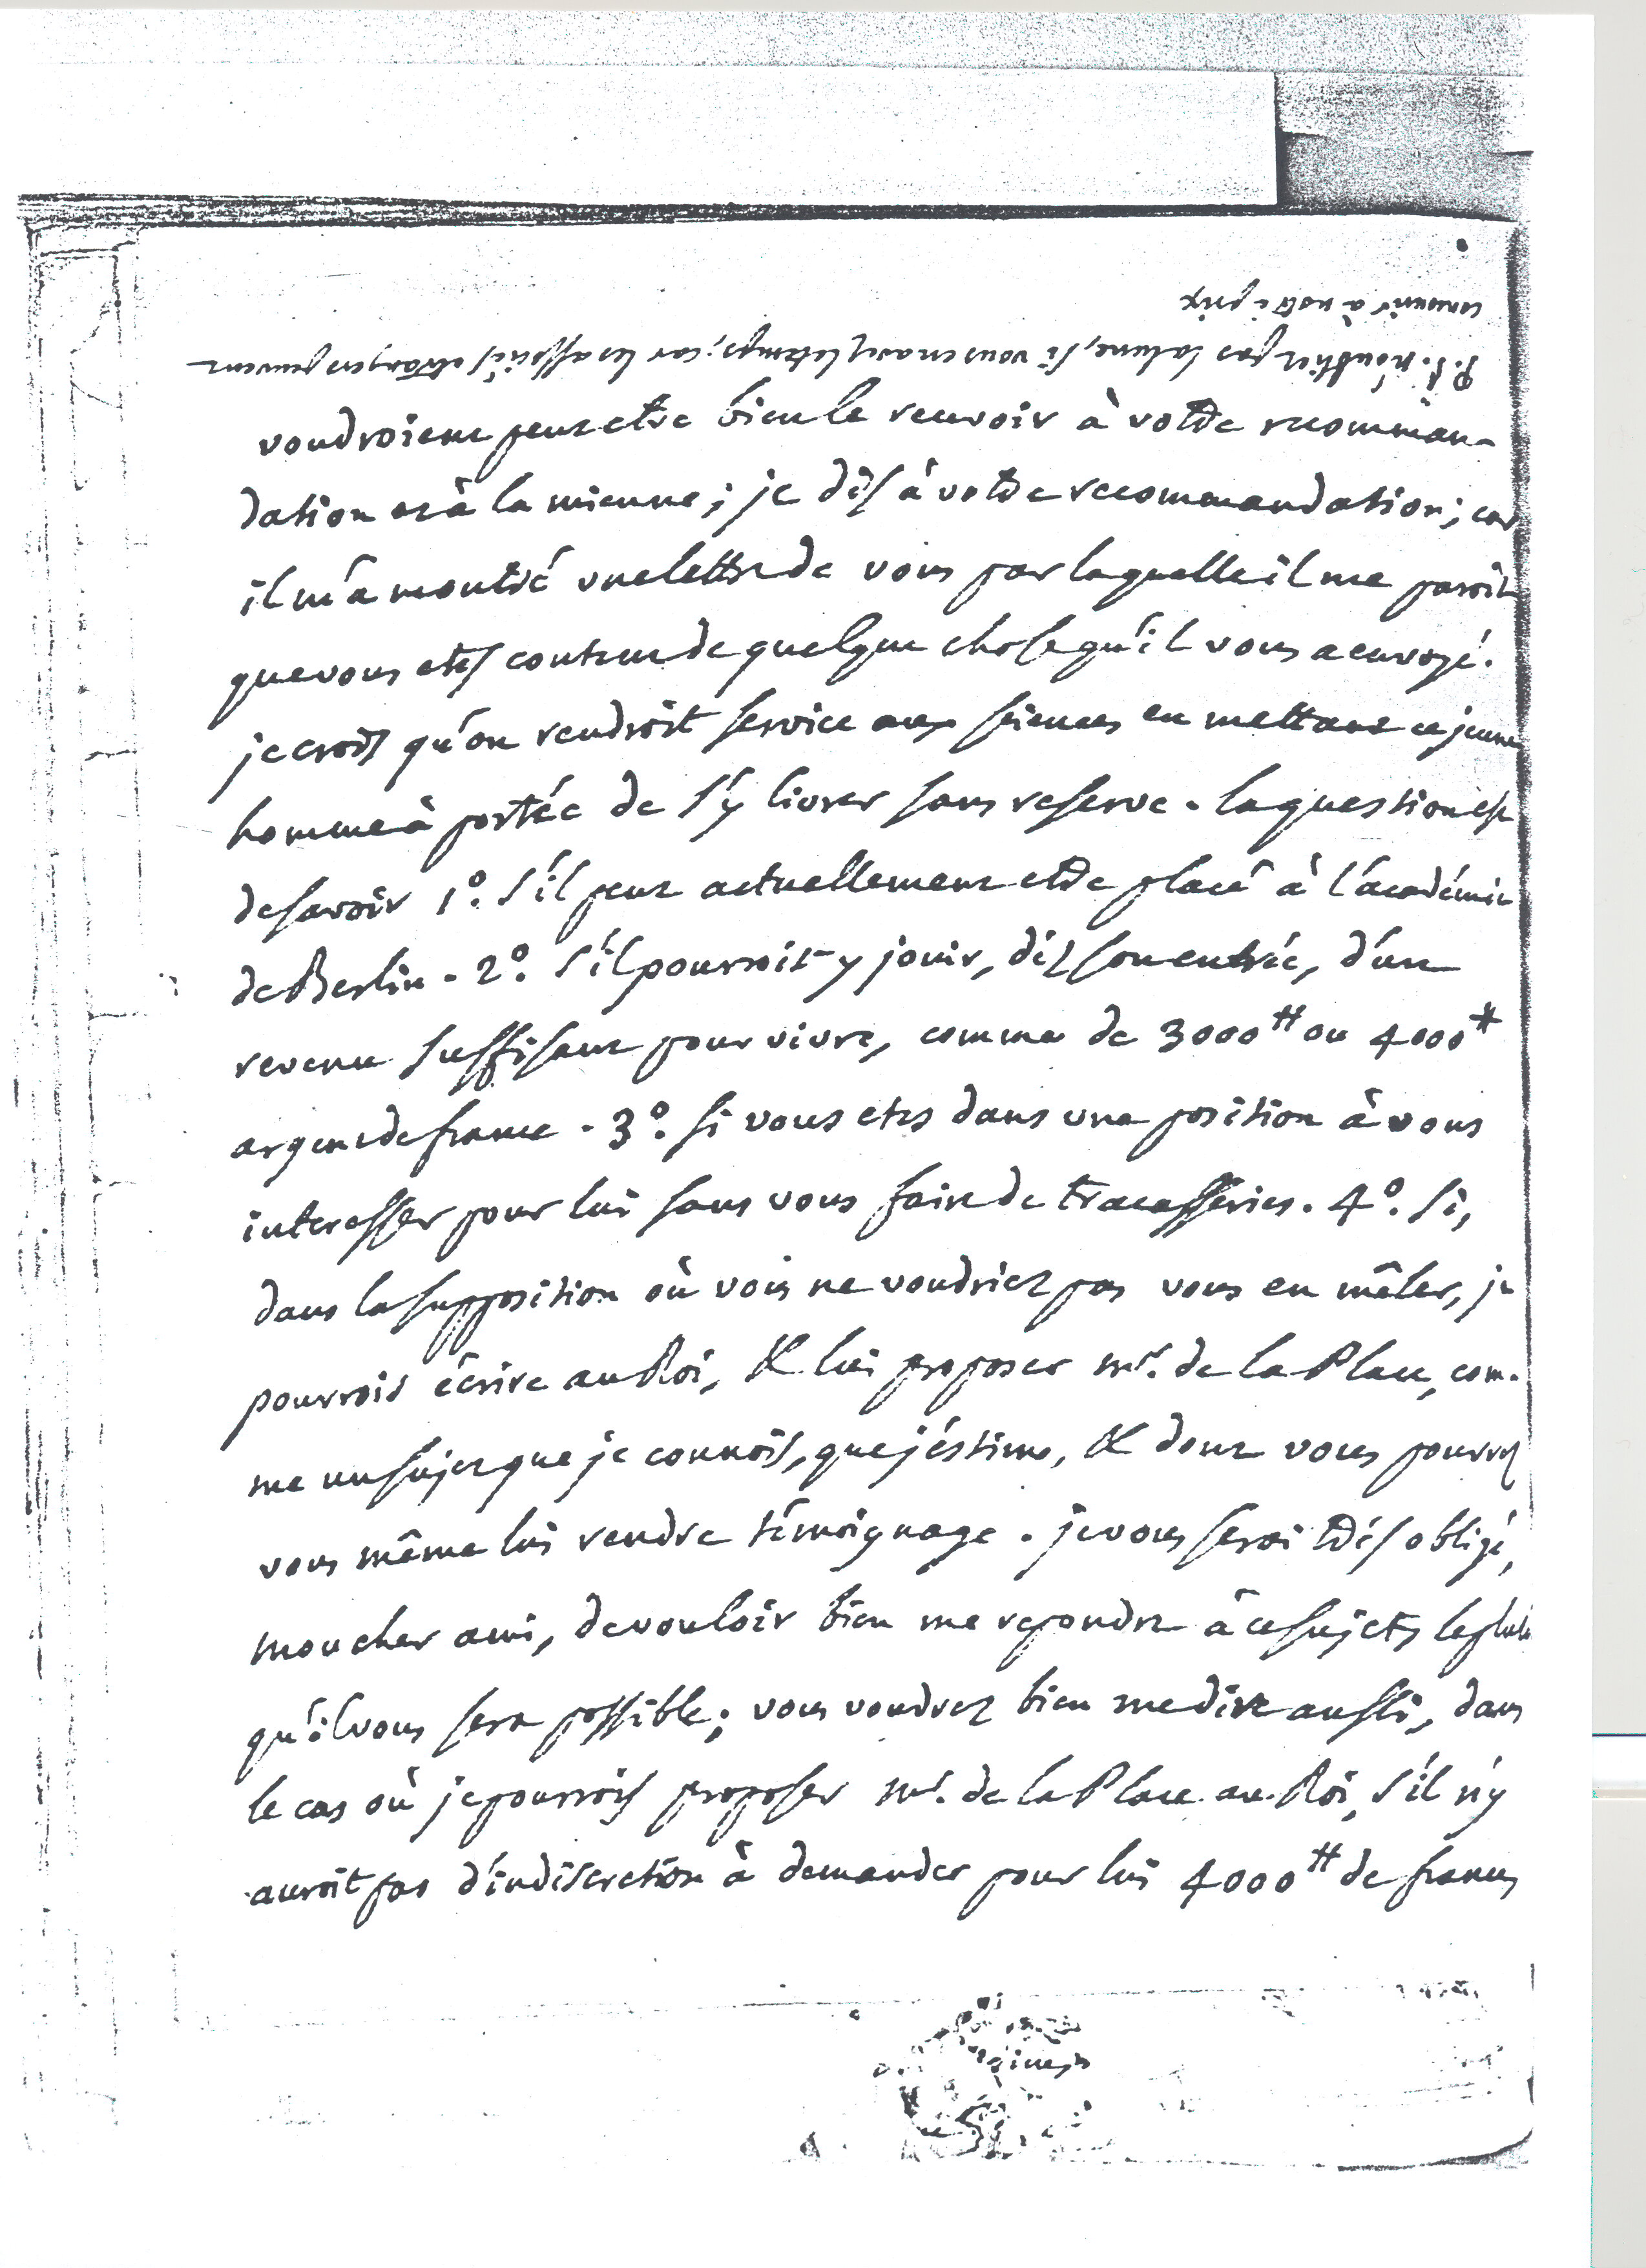 P. S. n'oubliez pas la lune, si vous en avez le temps; car les associés etrangers peuvent
concourir à notre prix
voudroient peut etre bien le recevoir à votre recomman-
dation et à la mienne; je dis à votre recommandation; car
il m'a montré une lettre de vous par laquelle il me paroit
que vous etes content de quelque chose qu'il vous a envoyé.
je crois qu'on rendroit service aux sciences en mettant ce jeune
homme à portée de s'y livrer sans reserve. la question est
de savoir 1.° s'il peut actuellement etre placé à l'académie
de Berlin. 2.° s'il pourroit y jouir, dès son entrée, d'un
revenu suffisant pour vivre, comme de 3000# ou 4000#
argent de france. 3.° si vous etes dans une position à vous
interesser pour lui sans vous faire de tracasseries. 4.° si,
dans la supposition où vous ne voudriez pas vous en mêler, je
pourrois écrire au Roi, & lui proposer mr. de la Place, com-
me un sujet que je connois, que j'éstime, & dont vous pourrez
vous même lui rendre témoignage. je vous serai très obligé,
mon cher ami, de vouloir bien me repondre à ce sujet, le plutot
qu'il vous sera possible; vous voudrez bien me dire aussi, dans
le cas où je pourrois proposer mr. de la Place au Roi, s'il n'y
auroit pas d'indiscretion à demander pour lui 4000# de france